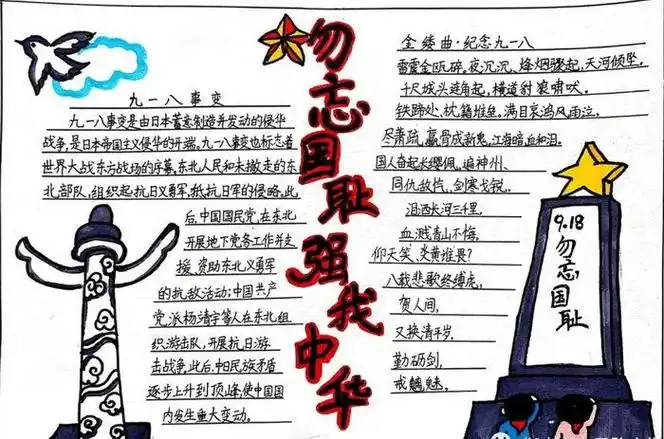 勿忘国耻强我中华
九一八事变
九一八事变是由日本蓄意制造并发动的侵华
战争,是日本帝国主义侵华的开端。九一八事变也标志着
世界大战东方战场的序幕,东北人民和未撤走的东
北部队,组织起抗日义勇军,抵抗日军的侵略,此
后,中国国民党,在东北
开展地下党务工作并支
援、资助东北义勇军
的抗敌活动;中国共产
党,派杨清宇等人在东北组
织游击队,开展抗日游
击战争,此后,中日民族矛盾
逐步上升到顶峰,使中国国
内发生重大变动。
金缕曲·纪念九一八
雷震金瓯碎。夜沉沉、烽烟骤起,天河倾坠,
千尺城头连角起,横道豺狼啸吠。
铁蹄处、枕籍堆垒。满目哀鸿风雨泣,
尽萧疏、羸骨成新鬼,江海暗,血和泪。
国人奋起长缨佩。遍神州、
同仇敌忾,剑寒戈锐,
汩洒长河三千里,
血溅青山不悔,
仰天笑、炎黄谁畏?
八载悲歌终缚虎,
贺人间,
又换清平岁,
勤砺剑,
戒魍魅,
9.18
勿忘国耻